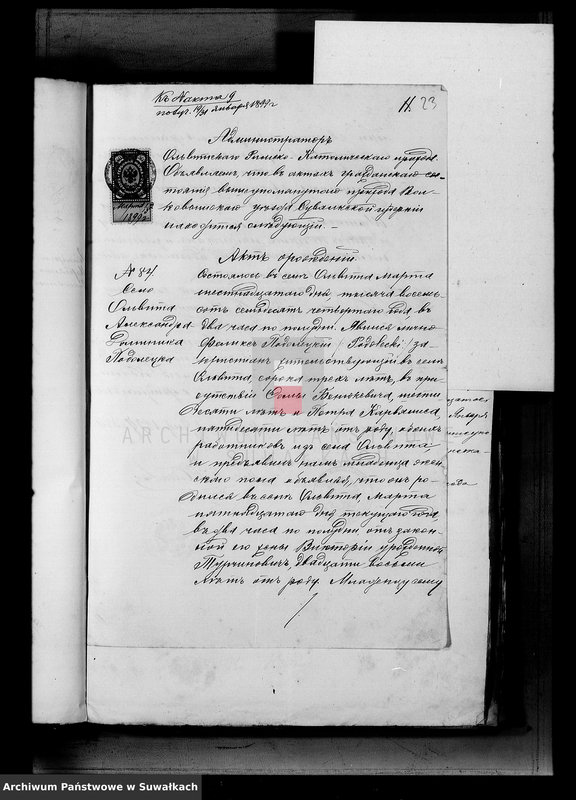 Къ Акта 9
января 1897 г
11. 23
Администраторъ
Ольвитскаго Римско-Католическаго прихода
Объявляетъ, что въ актахъ гражданскаго со-
стоянія вышеупомянутаго прихода Вол-
ковышскаго уѣзда Сувалкской губерніи
находится слѣдующій. —
Актъ о рожденіи.
№ 84
Село
Ольвита
Александра
Доминика
Подолецка
Состоялось въ селѣ Ольвита Марта
шестнадцатаго дня, тысяча восемь-
сотъ семьдесятъ четвертаго года въ
два часа по полудни. Явился лично
Феликсъ Подолецкій / за-
кристіанъ жительствующій въ селѣ
Ольвита, сорока трехъ лѣтъ, въ при-
сутствіи Бенюкевича, шести
десяти лѣтъ и Петра Карвялиса
пятидесяти лѣтъ отъ роду, обоихъ
работниковъ изъ села Ольвита,
и предъявилъ намъ младенца жен-
скаго пола объявляя, что онъ ро-
дился въ селѣ Ольвита, Марта
пятнадцатаго дня текущаго года,
въ два часа по полудни, отъ закон-
ной его жены Викторіи урожденной
Турчиновичъ, двадцати восьми
лѣтъ отъ роду. Младенцу сему
Января
Archiwum Państwowe w Suwałkach